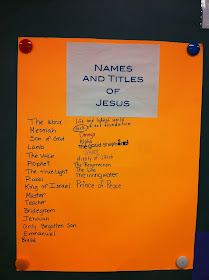 NAMES
AND TITLES
OF
JESUS
The Word
Messiah
Son of God
Lamb
The Voice
Prophet
The true light
Rabbi
King of Israel
Master
Teacher
Bridegroom
Jehovah
Only Begotten Son
Emmanuel
Life and light of world
Rock of our foundation
Omega
Alpha
the good shepherd
Christ
The Resurrection
The Life
The living water
Prince of Peace